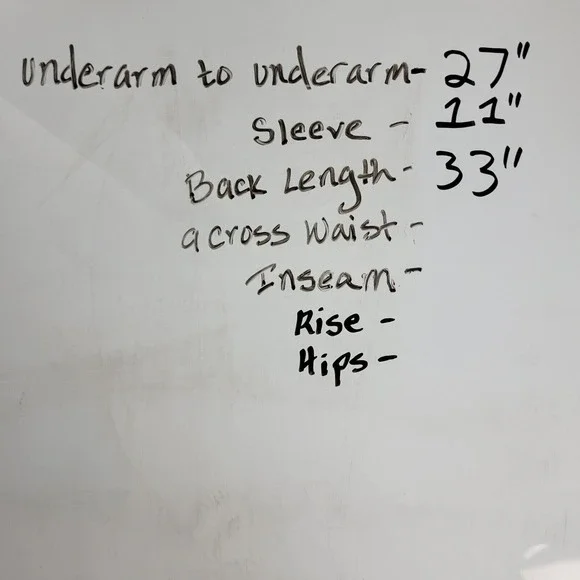 underarm to underarm- 27"
Sleeve - 11"
Back Length- 33"
across Waist -
Inseam -
Rise -
Hips -